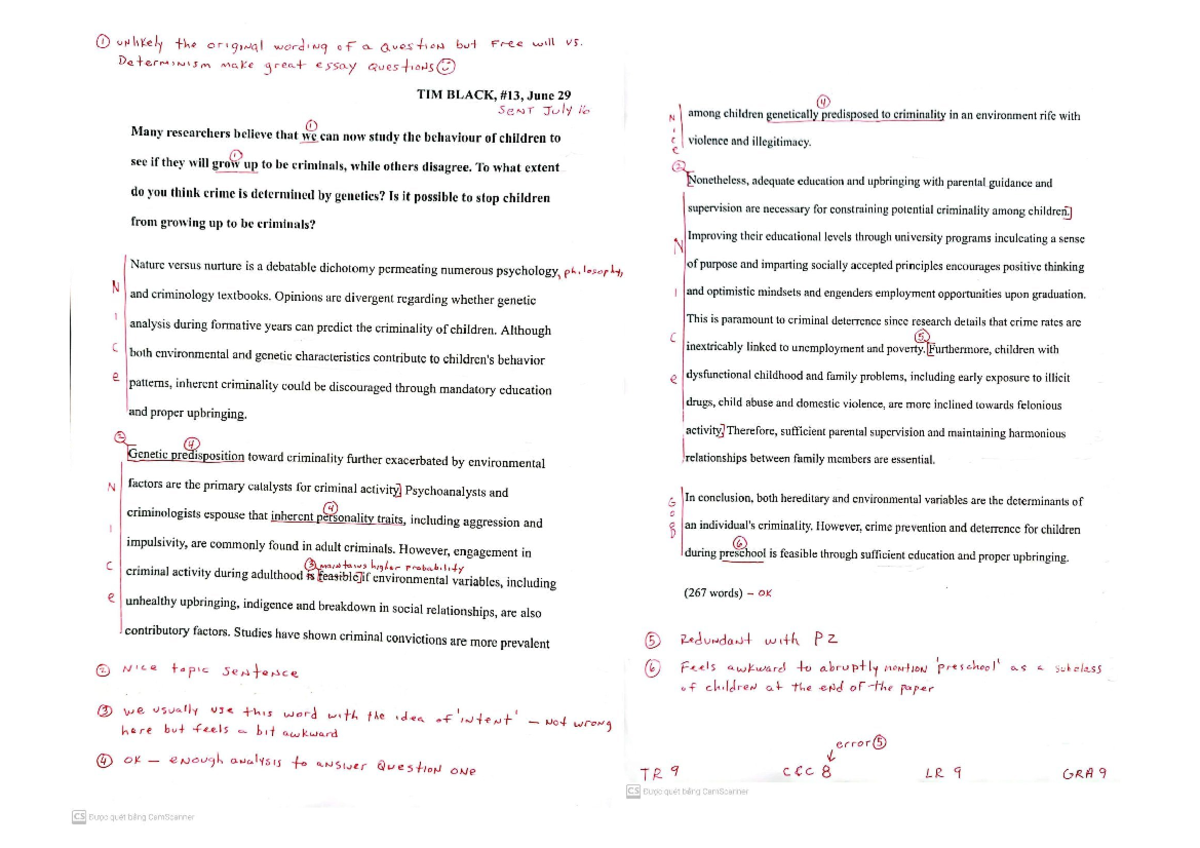 ① unlikely the original wording of a question but Free will vs.
Determinism make great essay questions
TIM BLACK, #13, June 29
SENT July 16
①
Many researchers believe that we can now study the behaviour of children to
①
see if they will grow up to be criminals, while others disagree. To what extent
do you think crime is determined by genetics? Is it possible to stop children
from growing up to be criminals?
Nature versus nurture is a debatable dichotomy permeating numerous psychology, philosophy,
and criminology textbooks. Opinions are divergent regarding whether genetic
analysis during formative years can predict the criminality of children. Although
both environmental and genetic characteristics contribute to children's behavior
patterns, inherent criminality could be discouraged through mandatory education
and proper upbringing.
Nice
② ④
[Genetic predisposition toward criminality further exacerbated by environmental
factors are the primary catalysts for criminal activity.] Psychoanalysts and
④
criminologists espouse that inherent personality traits, including aggression and
impulsivity, are commonly found in adult criminals. However, engagement in
③ maintains higher probability
criminal activity during adulthood is [feasible] if environmental variables, including
unhealthy upbringing, indigence and breakdown in social relationships, are also
contributory factors. Studies have shown criminal convictions are more prevalent
Nice
② Nice topic sentence
③ we usually use this word with the idea of 'intent' – Not wrong
here but feels a bit awkward
④ OK – enough analysis to answer question one
CS Được quét bằng CamScanner
④
among children genetically predisposed to criminality in an environment rife with
violence and illegitimacy.
Nice
②
[Nonetheless, adequate education and upbringing with parental guidance and
supervision are necessary for constraining potential criminality among children.]
Improving their educational levels through university programs inculcating a sense
of purpose and imparting socially accepted principles encourages positive thinking
and optimistic mindsets and engenders employment opportunities upon graduation.
This is paramount to criminal deterrence since research details that crime rates are
⑤
inextricably linked to unemployment and poverty. [Furthermore, children with
dysfunctional childhood and family problems, including early exposure to illicit
drugs, child abuse and domestic violence, are more inclined towards felonious
activity.] Therefore, sufficient parental supervision and maintaining harmonious
relationships between family members are essential.
Nice
In conclusion, both hereditary and environmental variables are the determinants of
an individual's criminality. However, crime prevention and deterrence for children
⑥
during preschool is feasible through sufficient education and proper upbringing.
Good
(267 words) – OK
⑤ Redundant with P2
⑥ Feels awkward to abruptly mention 'preschool' as a subclass
of children at the end of the paper
error ⑤
TR 9 C&C 8 LR 9 GRA 9
CS Được quét bằng CamScanner